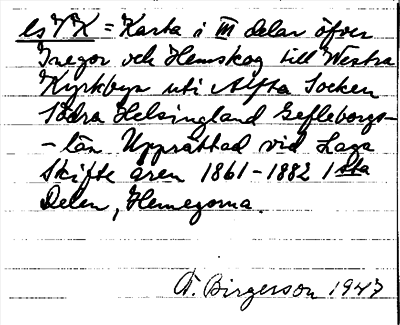 lsVK = Karta i III delar öfver
Inegor och Hemskog till Westra
Kyrkbyn uti Alfta Socken
Södra Helsingland Gefleborgs-
-län Upprättad vid Laga
Skifte åren 1861-1882 1sta
Delen, Hemegorna.
A. Birgerson 1947